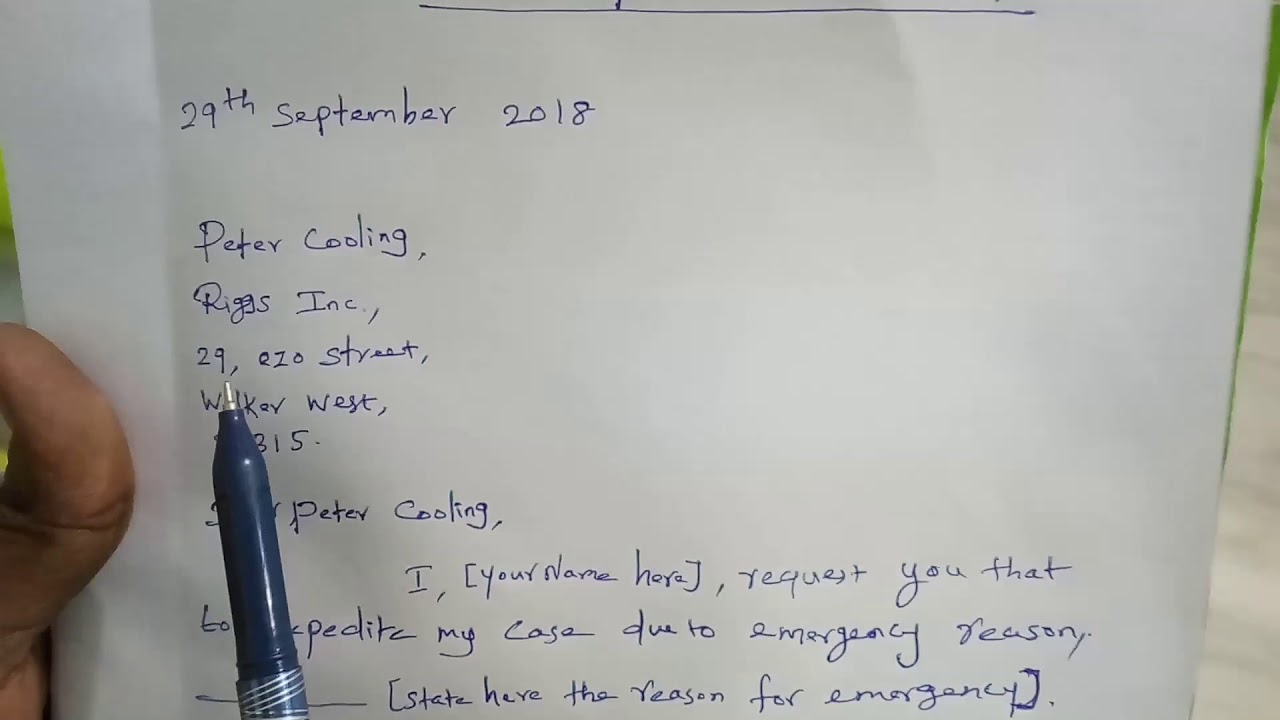 29th September 2018
Peter Cooling,
Riggs Inc.,
29, ezo street,
West,
315.
Peter Cooling,
I, [your Name here], request you that
my case due to emergency reason,
[state here the reason for emergency].